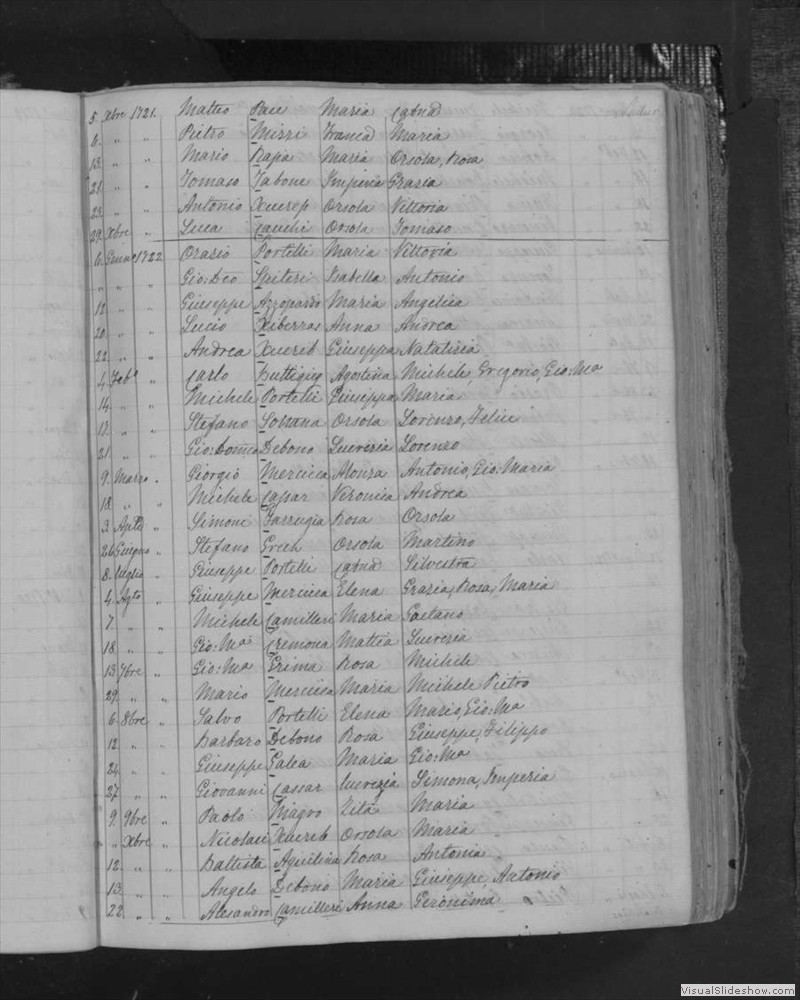 5 Xbre 1721. Matteo Pace Maria Catnd
6. " " Pietro Mizzi Francd Maria
13. " " Mario Rapa Maria Orsola, Rosa
21. " " Tomaso Tabone Imperia Grazia
23. " " Antonio Xuereb Orsola Vittoria
29. Xbre " Luca Cauchi Orsola Tomaso
6. 1722 Orazio Portelli Maria Vittoria
" " " Gio: Deo Spiteri Isabella Antonio
12. " " Giuseppe Azzopardo Maria Angelica
20. " " Lucio Xiberras Anna Andrea
22. " " Andrea Xuereb Giuseppa Natalizia
4. Febo " Carlo Buttigieg Agostina Michele, Gregorio, Gio: Ma
14. " " Michele Portelli Giuseppa Maria
17. " " Stefano Soltana Orsola Lorenzo, Felici
21. " " Gio: Domco Debono Lucrezia Lorenzo
9. Marzo " Giorgio Mercieca Alonza Antonio, Gio: Maria
18. " " Michele Cassar Veronica Andrea
3. Aple " Simone Farrugia Rosa Orsola
26. Giugno " Stefano Grech Orsola Martino
8. Luglio " Giuseppe Portelli Catnd Silvestra
4. Agto " Giuseppe Mercieca Elena Grazia, Rosa, Maria
7. " " Michele Camilleri Maria Gaetano
18. " " Gio: Ma Cremona Mattea Lucrezia
13. 7bre " Gio: Ma Grima Rosa Michele
29. " " Mario Mercieca Maria Michele Pietro
6. 8bre " Salvo Portelli Elena Mario, Gio: Ma
12. " " Barbaro Debono Rosa Giuseppe, Filippo
24. " " Giuseppe Galea Maria Gio: Ma
27. " " Giovanni Cassar Lucrezia Simona, Imperia
9. 9bre " Paolo Zita Maria
" Xbre " Nicolau Xuereb Orsola Maria
12. " " Battista Aquilina Rosa Antonia
13. " " Angelo Debono Maria Giuseppe, Antonio
22. " " Alesandro Camilleri Anna Geronima
VisualSlideshow.com